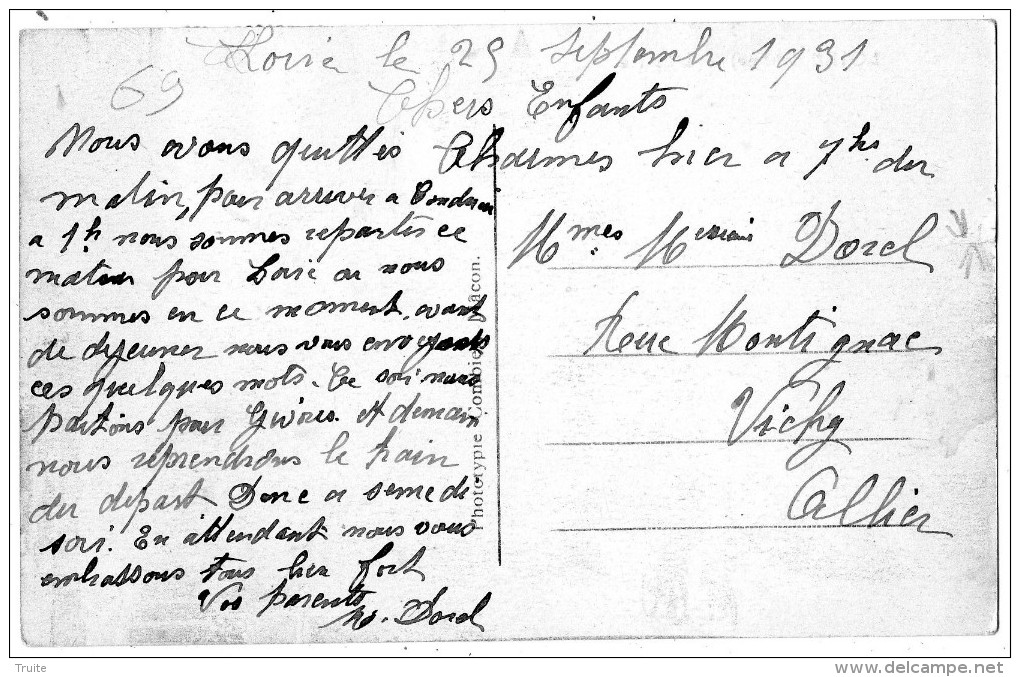 Loire le 25 Septembre 1931
69
Chers Enfants
Nous avons quittés Charmes hier a 7hs du
matin, pour arriver a Condrieu
a 1h nous sommes repartis ce
matin pour Loire ou nous
sommes en ce moment, avant
de dejeuner nous vous envoyons
ces quelques mots. Ce soir nous
partons pour Givors. et demain
nous reprendrons le train
du départ Donc a samedi
soir. En attendant nous vous
embrassons tous bien fort
Vos parents
Dorel
Mmes Dorel
Rue Montignac
Vichy
Allier
Phototypie Combier Macon.
Truite
www.delcampe.net